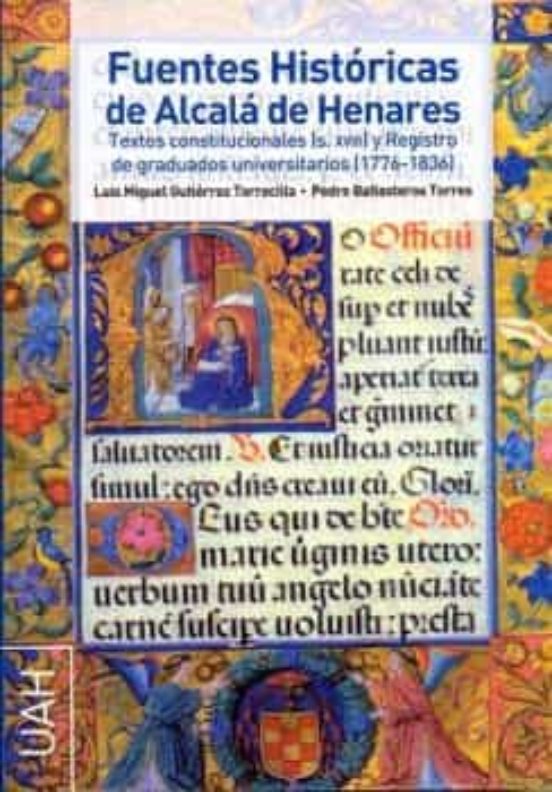 Fuentes Históricas
de Alcalá de Henares
Textos constitucionales (s. XVIII) y Registro
de graduados universitarios (1776-1836)
Luis Miguel Gutiérrez Torrecilla • Pedro Ballesteros Torres
Officiū
rate celi de
sup et nubē
pluant iustū:
aperiat terra
et gīminet
saluatorem. V. Et iusticia oriatur
simul: ego dñs creaui eū. Glori.
Eus qui de bte Oro.
marie ūginis utero:
uerbum tuū angelo nūciāte
carnē suscipe uoluisti: presta
UAH